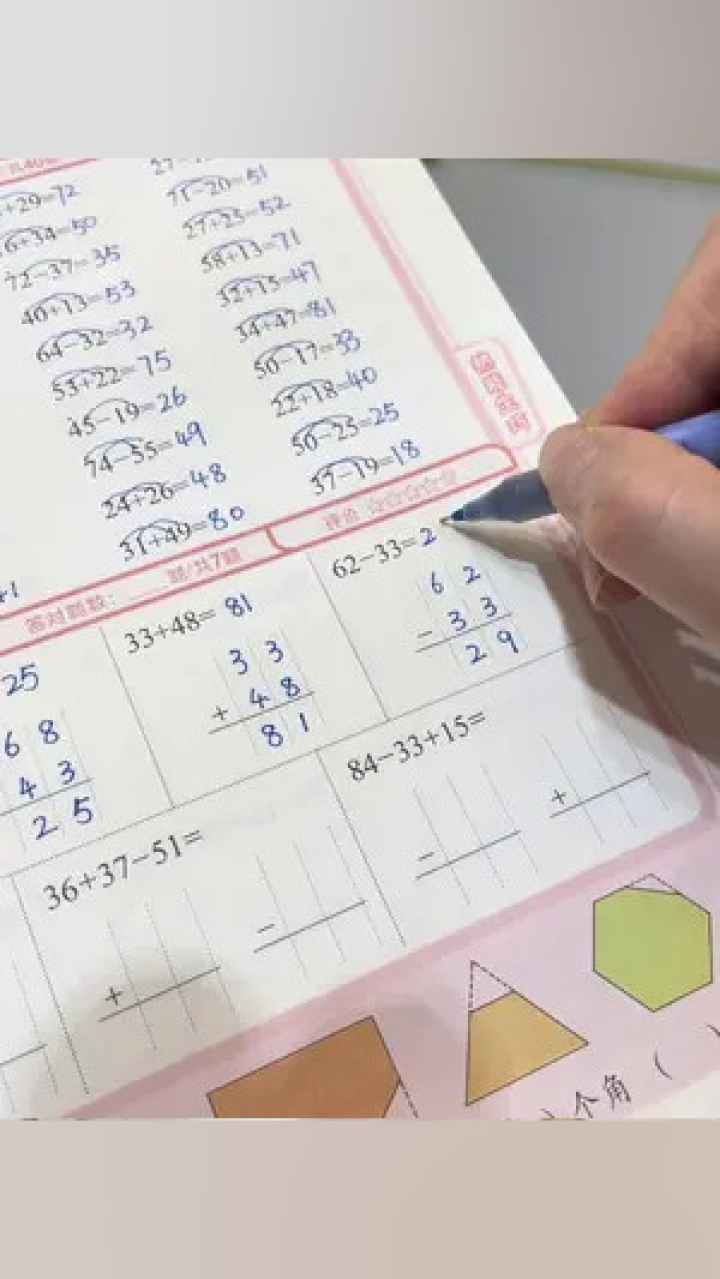 +29=72
6+34=50
72-37=35
40+13=53
64-32=32
53+22=75
45-19=26
74-55=49
24+26=48
31+49=80
71-20=51
27+25=52
58+13=71
32+15=47
34+47=81
50-17=33
22+18=40
50-25=25
37-19=18
答对题数: 题/共7题
评价 ☆☆☆☆☆
25
6 8
4 3
2 5
33+48= 81
3 3
+ 4 8
8 1
62-33=2
6 2
- 3 3
2 9
36+37-51=
+
-
84-33+15=
-
+
)个角 ( )